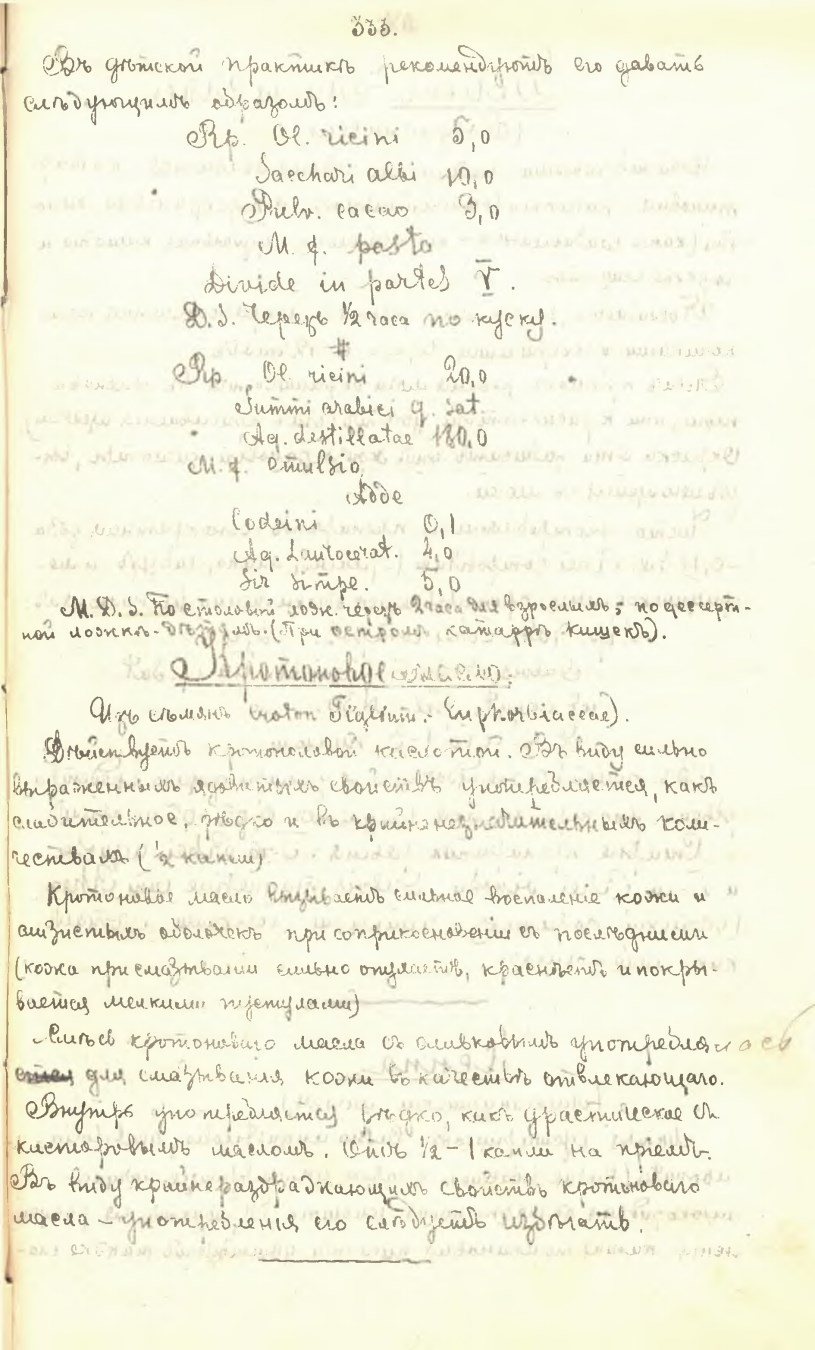 333.
Въ дѣтской практикѣ рекомендуютъ его давать
слѣдующимъ образомъ:
Rp. Ol. ricini 5,0
Sacchari albi 10,0
Pulv. cacao 3,0
M. f. pasta
Divide in partes V.
D. S. Черезъ 1/2 часа по куску.
#
Rp. Ol. ricini 20,0
Gummi arabici q. sat.
Aq. destillatae 180,0
M. f. emulsio
Adde
Codeini 0,1
Aq. Laurocerat. 4,0
Sir simpl. 5,0
M. D. S. По столовой ложк. черезъ 2 часа для взрослыхъ; по десерт-
ной ложкѣ - дѣтямъ. (При остромъ катаррѣ кишекъ).
Кротоновое масло.
Изъ сѣмянъ Croton Tiglium. - Euphorbiaceae).
Дѣйствуетъ кротоноловой кислотой. Въ виду сильно
выраженныхъ ядовитыхъ свойствъ употребляется, какъ
слабительное, рѣдко и въ крайне незначительныхъ коли-
чествахъ (1/2 капли)
Кротоновое масло вызываетъ сильное воспаленіе кожи и
слизистыхъ оболочекъ при соприкосновеніи съ послѣдними
(кожа при смазываніи сильно опухаетъ, краснѣетъ и покры-
вается мелкими пустулами)
Смѣсь кротоноваго масла съ оливковымъ употреблялось
для смазыванія кожи въ качествѣ отвлекающаго.
Внутрь употребляется рѣдко, какъ драстическое съ
касторовымъ масломъ. Отъ 1/2 - 1 капли на пріемъ.
Въ виду крайне раздражающихъ свойствъ кротоноваго
масла - употребленія его слѣдуетъ избѣгать.